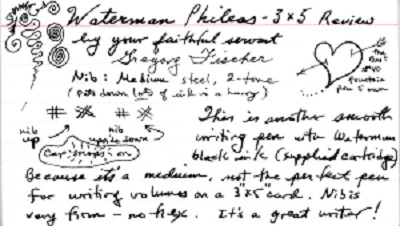 Waterman Phileas - 3x5 Review
by your faithful servant
Gregory Fischer
Nib: Medium steel, 2-tone
(puts down lots of ink in a hurry)
nib up
nib upside down
This is another smooth
writing pen with Waterman
black ink (supplied cartridge)
Because it's a medium, not the perfect pen
for writing volumes on a 3"x5" card. Nib is
very firm - no flex. It's a great writer!